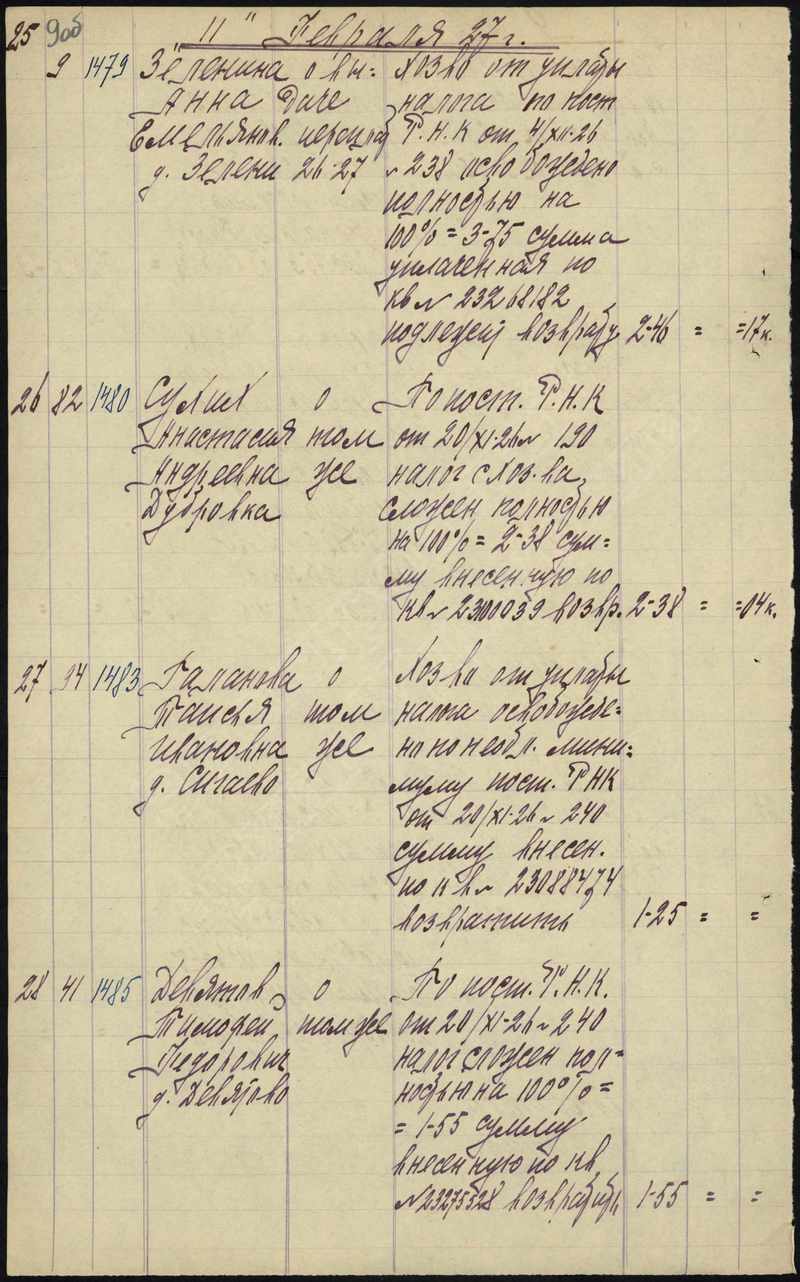 25 9об "11" Февраля 27 г.
9 1479 Зеленина о вы= Хозво от уплаты
Анна даче налога по пост
Емельянов. переплат Р.Н.К от 4/XII-26
д. Зелени 26-27 № 238 освобождено
полностью на
100% = 3-75 сумма
уплаченная по
кв № 23268182
подлежит возврату 2-46 = =17к.
26 82 1480 Сухих о По пост. Р.Н.К
Анастасия том от 20/XI-26 № 190
Андреевна же налог с хоз-ва
Дубровка сложен полностью
на 100% = 2-38 сум=
му внесенную по
кв № 2300039 возвр. 2-38 = =04к.
27 94 1483 Галанова о Хозво от уплаты
Таисья том налога освобожде=
Ивановна же но по необл. мини=
д. Сигаево муму пост. РНК
от 20/XI-26 № 240
сумму внесен.
по кв № 23088474
возвратить 1-25 = =
28 41 1485 Девятов о По пост. Р.Н.К.
Тимофей том же от 20/XI-26 № 240
Федорович налог сложен пол=
д. Девятово ностью на 100% =
= 1-55 сумму
внесенную по кв
№ 23275328 возвратить 1-55 = =